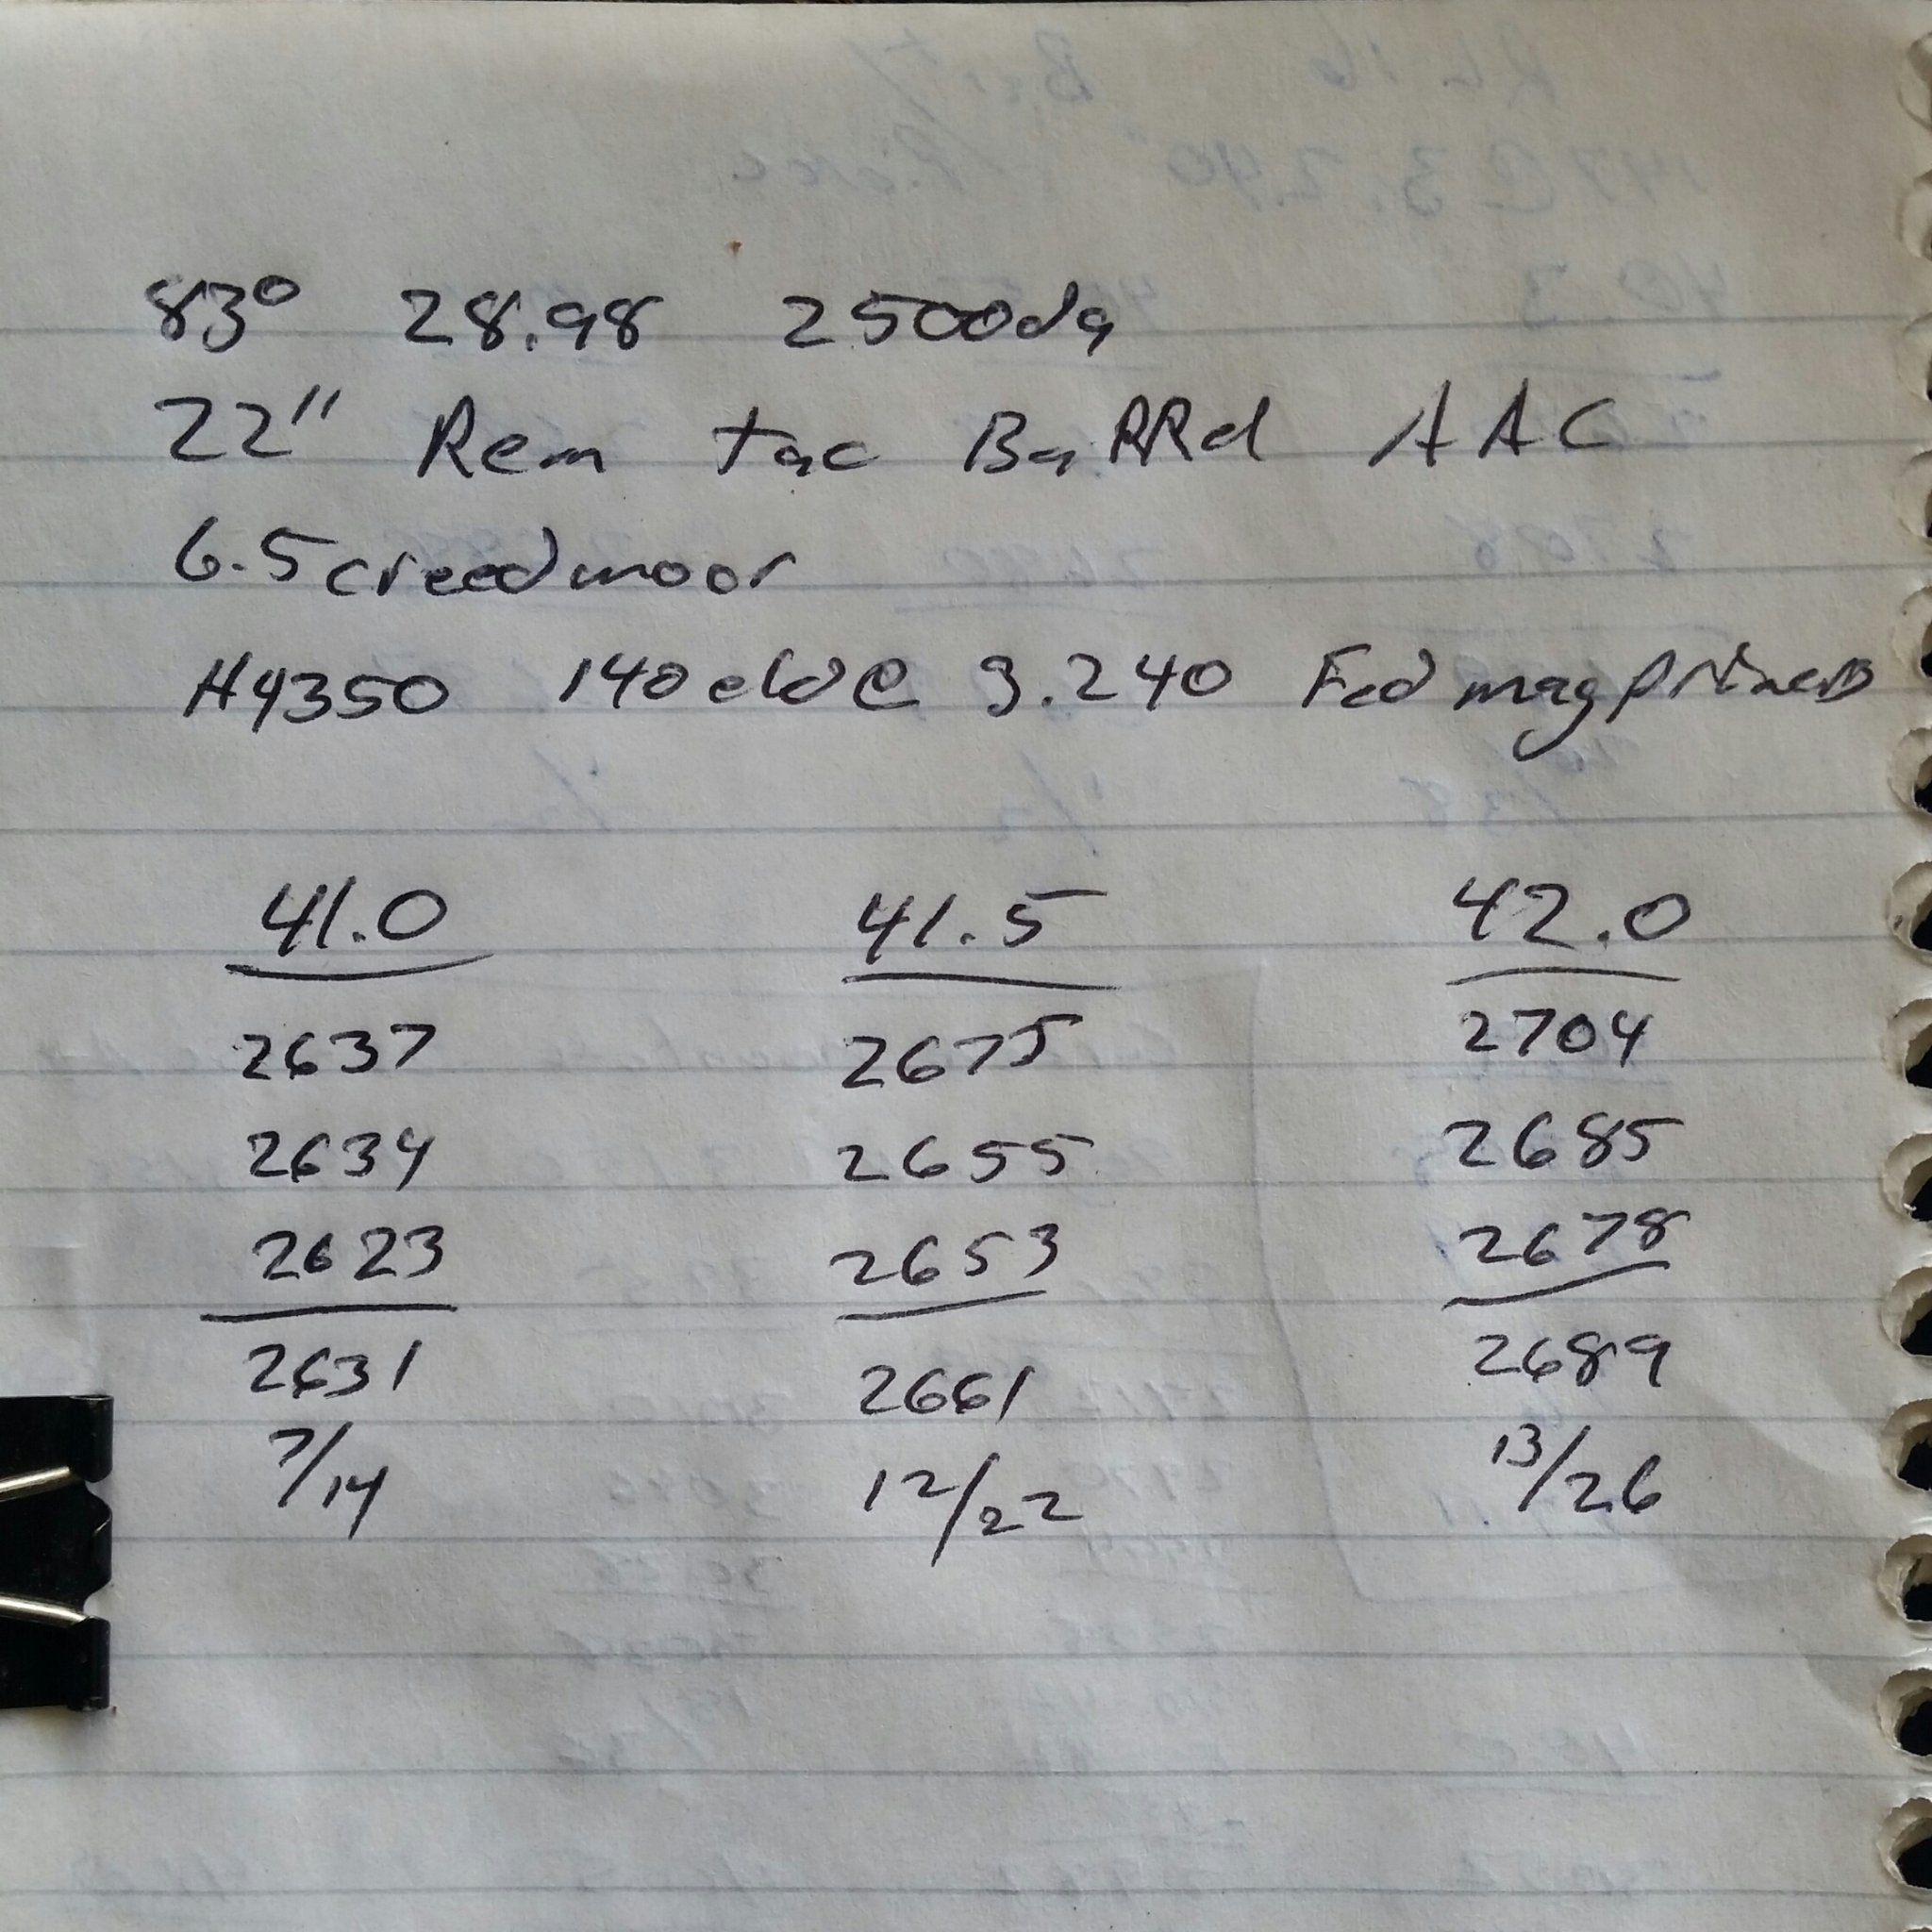 83° 28.98 2500da
22" Rem tac BaRRel AAC
6.5 creedmoor
H4350 140 eld @ 3.240 Fed mag primers
41.0 41.5 42.0
2637 2675 2704
2634 2655 2685
2623 2653 2678
2631 2661 2689
7/14 12/22 13/26